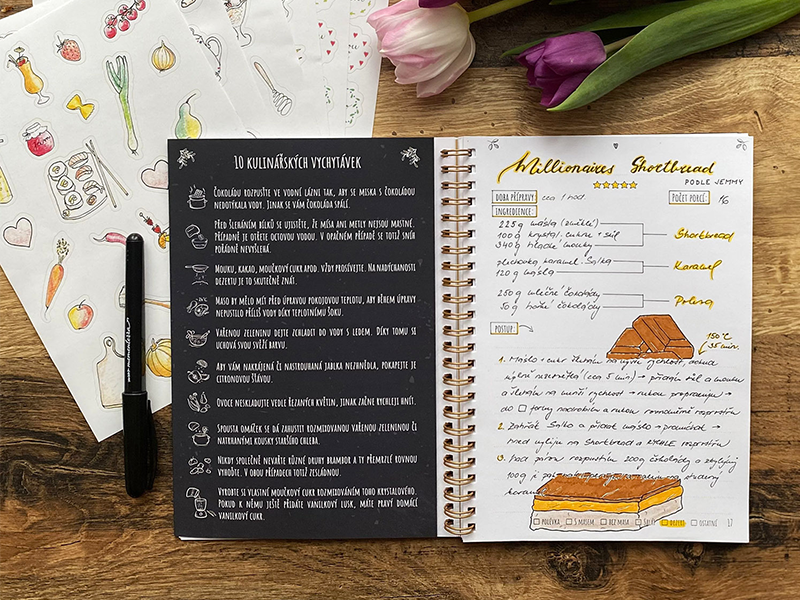 10 KULINÁŘSKÝCH VYCHYTÁVEK
ČOKOLÁDU ROZPUSŤTE VE VODNÍ LÁZNI TAK, ABY SE MISKA S ČOKOLÁDOU
NEDOTÝKALA VODY. JINAK SE VÁM ČOKOLÁDA SPÁLÍ.
PŘED ŠLEHÁNÍM BÍLKŮ SE UJISTĚTE, ŽE MÍSA ANI METLY NEJSOU MASTNÉ.
PŘÍPADNĚ JE OTŘETE OCTOVOU VODOU. V OPAČNÉM PŘÍPADĚ SE TOTIŽ SNÍH
POŘÁDNĚ NEVYŠLEHÁ.
MOUKU, KAKAO, MOUČKOVÝ CUKR APOD. VŽDY PROSÍVEJTE. NA NADÝCHANOSTI
DEZERTU JE TO SKUTEČNĚ ZNÁT.
MASO BY MĚLO MÍT PŘED ÚPRAVOU POKOJOVOU TEPLOTU, ABY BĚHEM ÚPRAVY
NEPUSTILO PŘÍLIŠ VODY DÍKY TEPLOTNÍMU ŠOKU.
VAŘENOU ZELENINU DEJTE ZCHLADIT DO VODY S LEDEM. DÍKY TOMU SI
UCHOVÁ SVOU SVĚŽÍ BARVU.
ABY VÁM NAKRÁJENÁ ČI NASTROUHANÁ JABLKA NEZHNĚDLA, POKAPEJTE JE
CITRONOVOU ŠŤÁVOU.
OVOCE NESKLADUJTE VEDLE ŘEZANÝCH KVĚTIN, JINAK ZAČNE RYCHLEJI HNÍT.
SPOUSTA OMÁČEK SE DÁ ZAHUSTIT ROZMIXOVANOU VAŘENOU ZELENINOU ČI
NATRHANÝMI KOUSKY STARŠÍHO CHLEBA.
NIKDY SPOLEČNĚ NEVAŘTE RŮZNÉ DRUHY BRAMBOR A TY PŘEMRZLÉ ROVNOU
VYHOĎTE. V OBOU PŘÍPADECH TOTIŽ ZESLÁDNOU.
VYROBTE SI VLASTNÍ MOUČKOVÝ CUKR ROZMIXOVÁNÍM TOHO KRYSTALOVÉHO.
POKUD K NĚMU JEŠTĚ PŘIDÁTE VANILKOVÝ LUSK, MÁTE PRAVÝ DOMÁCÍ
VANILKOVÝ CUKR.
Millionaires Shortbread
PODLE JEMMY
DOBA PŘÍPRAVY: cca 1 hod. POČET PORCÍ: 16
INGREDIENCE:
225 g másla (změklé)
100 g krystal. cukru + sůl Shortbread
340 g hladké mouky
plechovka karamel. Salka Karamel
120 g másla
250 g mléčné čokolády Poleva
50 g hořké čokolády
POSTUP:
150°C
35 min.
1. Máslo + cukr
(cca 5 min) → přidám sůl a mouku
a šlehám na menší rychlost → rukou
do formy
2. Zahřát Salko a přidat máslo →
na Shortbread a RYCHLE
3. rozpustím 200g čokolády a
100g
POLÉVKA S MASEM BEZ MASA SALÁT DEZERT OSTATNÍ 17